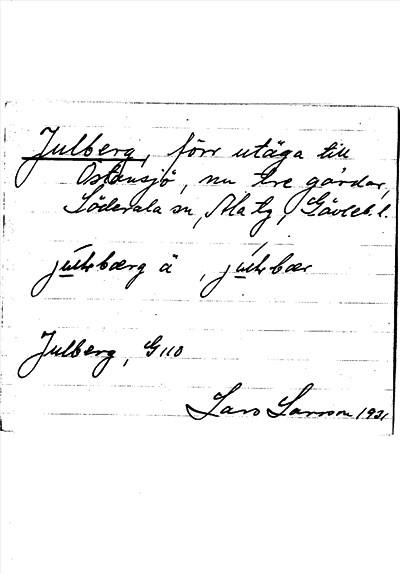 Julberg, förr utäga till
Östansjö, nu tre gårdar,
Söderala sn, Ala tg, Gävleb. l.
bærg ä ,
Julberg, G 110
Lars Larsson 1931